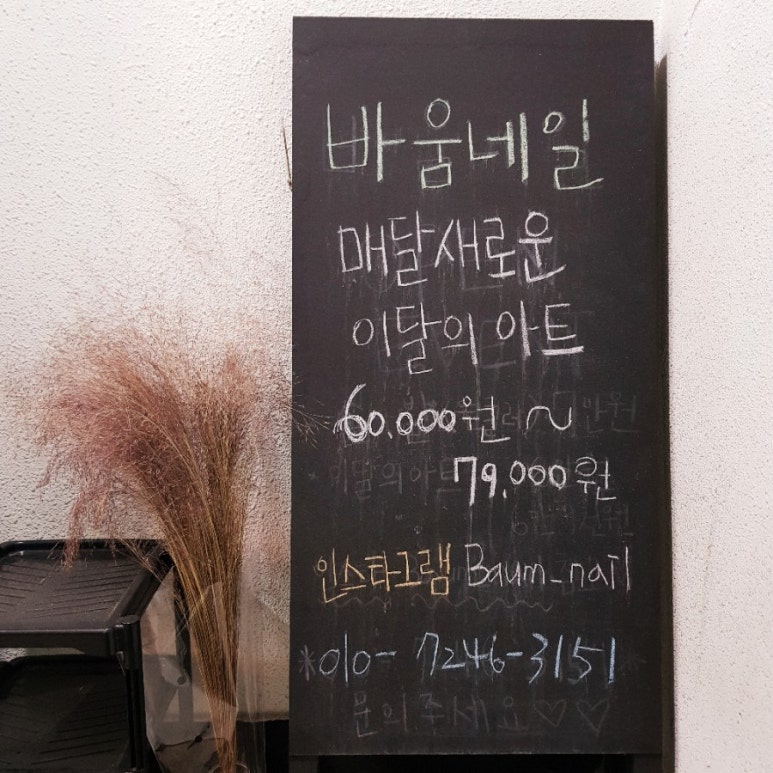 바움네일
매달새로운
이달의 아트
60.000원 ~
79.000원
인스타그램 Baum_nail
*010-7246-3151*
문의주세요♡♡